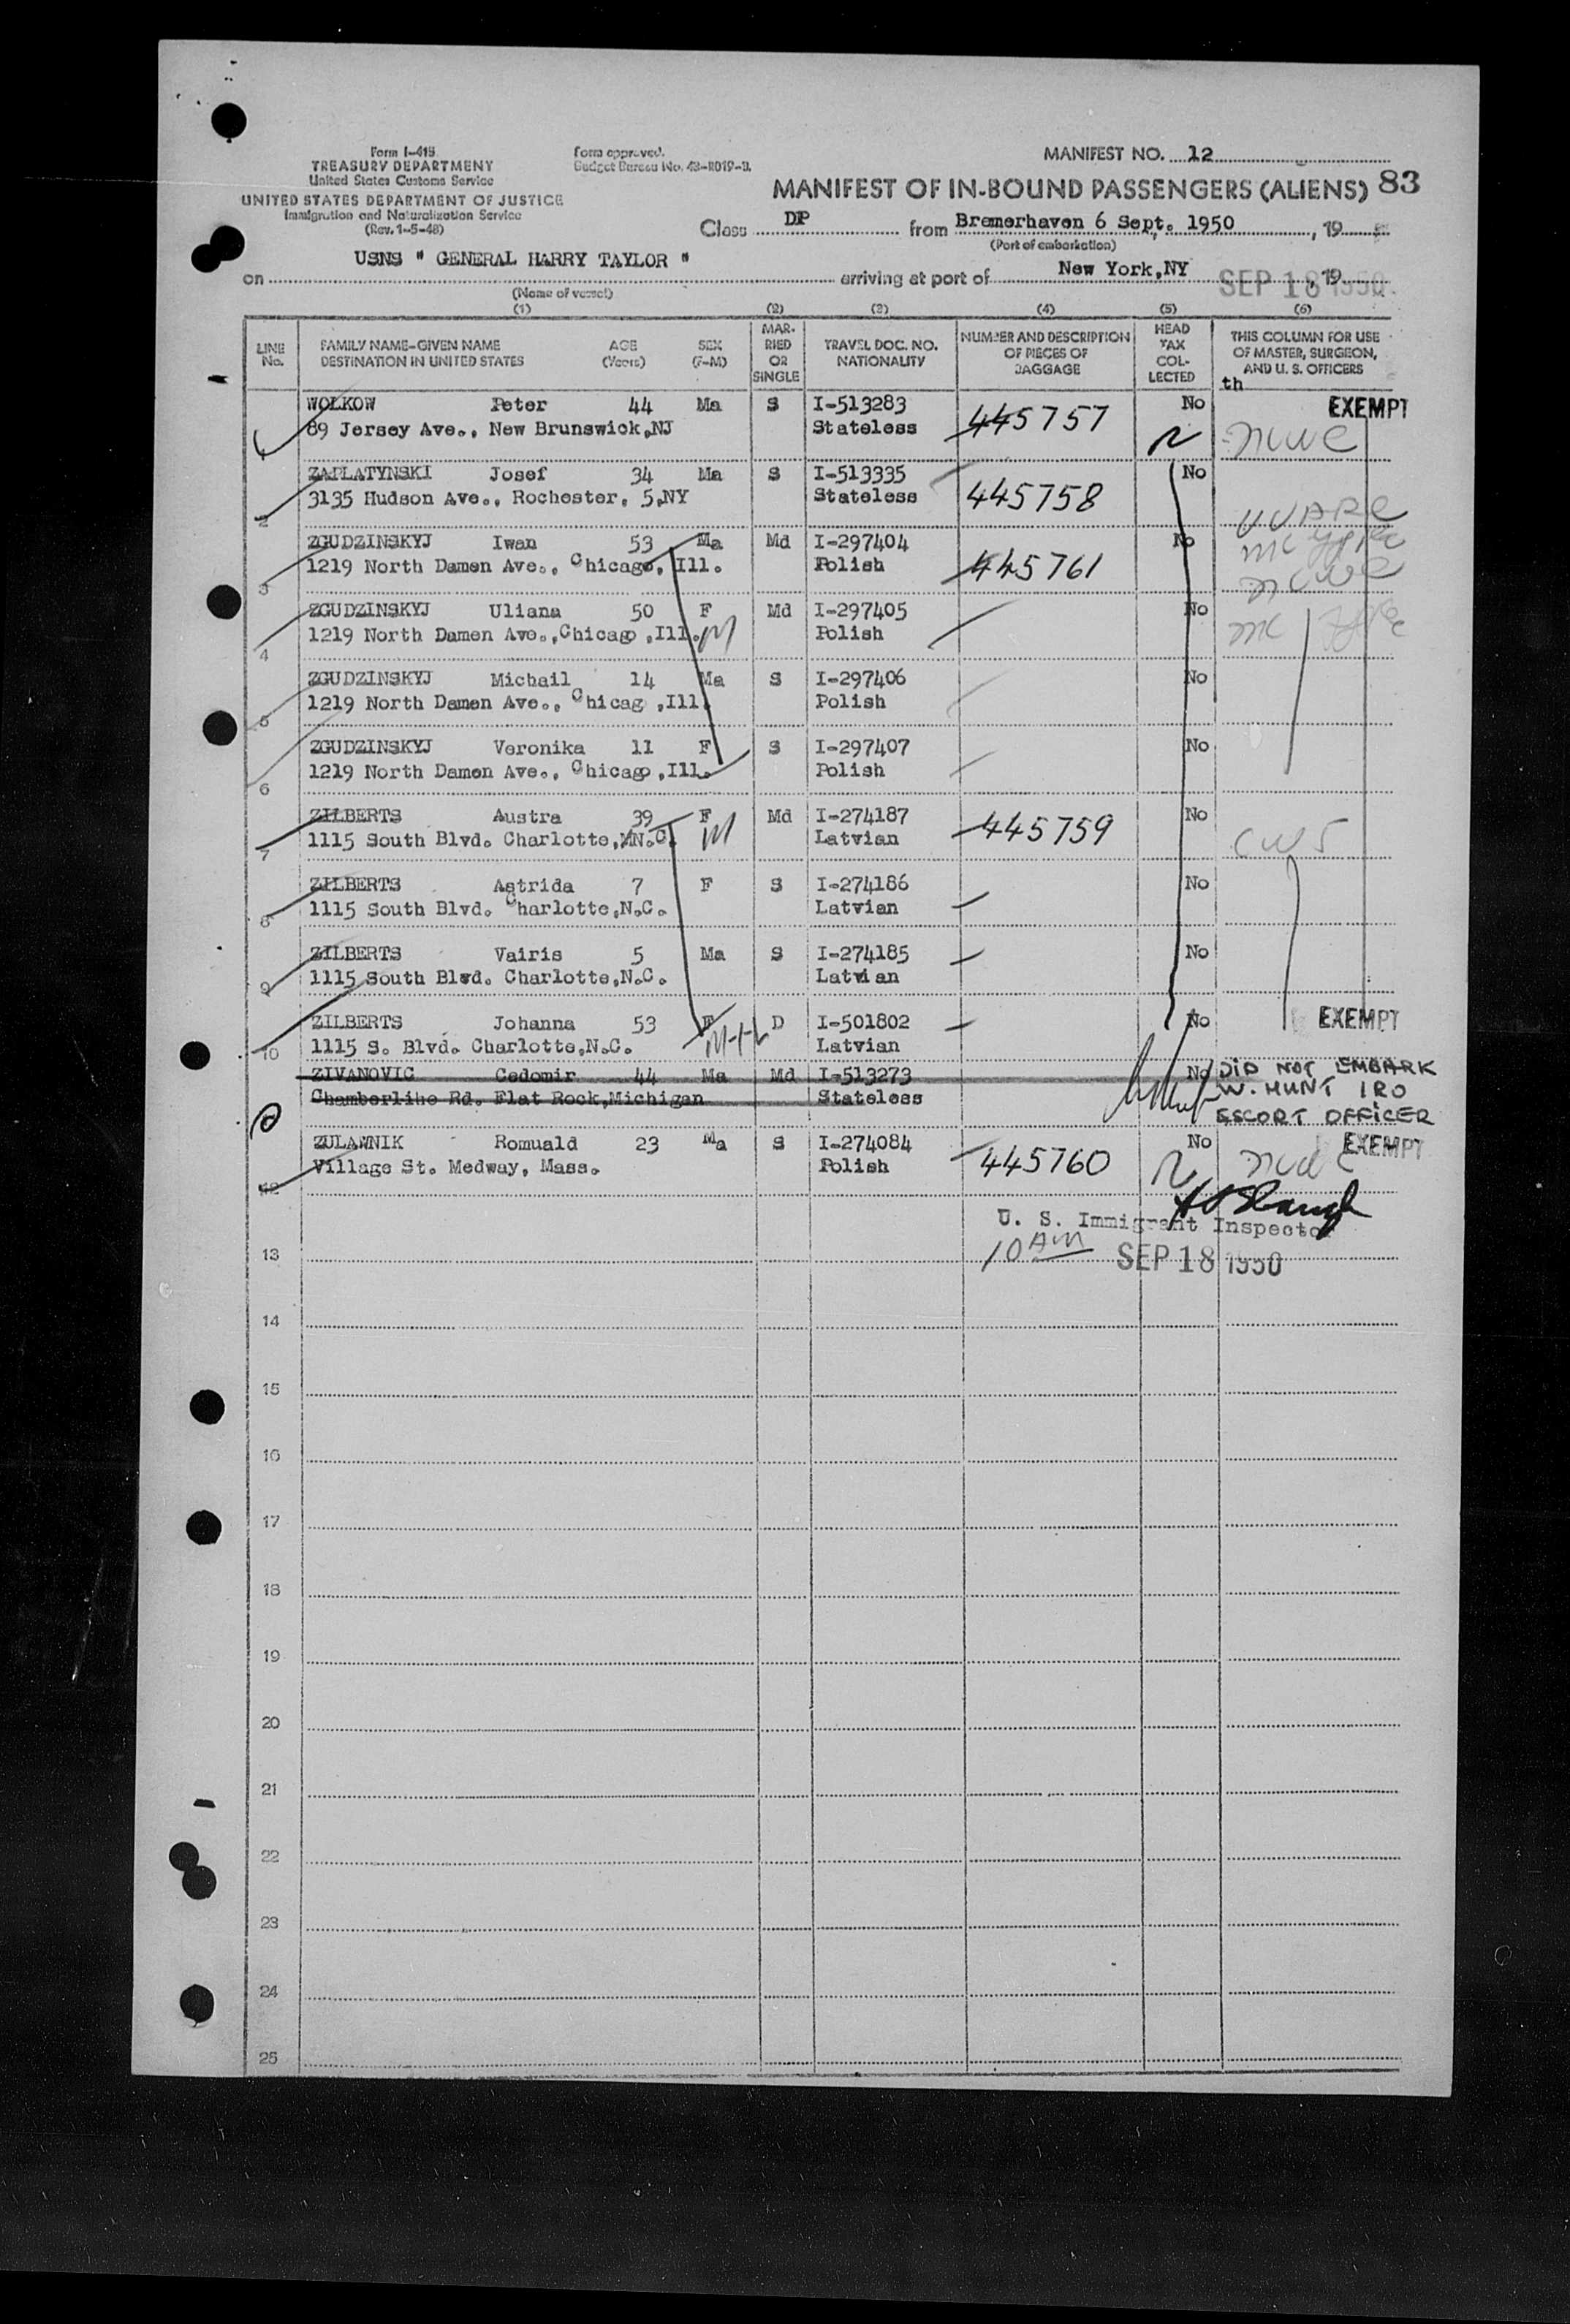 Form I-415
TREASURY DEPARTMENT
United States Customs Service
UNITED STATES DEPARTMENT OF JUSTICE
Immigration and Naturalization Service
(Rev. 1-5-48)
Form approved.
Budget Bureau No. 43-R019-3.
MANIFEST NO. 12
MANIFEST OF IN-BOUND PASSENGERS (ALIENS) 83
Class DP from Bremerhaven 6 Sept. 1950, 19
(Port of embarkation)
on USNS " GENERAL HARRY TAYLOR " arriving at port of New York,NY SEP 18 1950, 19
(Name of vessel)
(1) (2) (3) (4) (5) (6)
LINE No. FAMILY NAME-GIVEN NAME DESTINATION IN UNITED STATES AGE (Years) SEX (F-M) MARRIED OR SINGLE TRAVEL DOC. NO. NATIONALITY NUMBER AND DESCRIPTION OF PIECES OF BAGGAGE HEAD TAX COLLECTED THIS COLUMN FOR USE OF MASTER, SURGEON, AND U. S. OFFICERS
th
WOLKOW Peter 44 Ma S I-513283 445757 No EXEMPT
1 89 Jersey Ave., New Brunswick,NJ Stateless
ZAPLATYNSKI Josef 34 Ma S I-513335 445758 No
2 3135 Hudson Ave., Rochester, 5,NY Stateless
ZGUDZINSKYJ Iwan 53 Ma Md I-297404 445761 No
3 1219 North Damen Ave., Chicago, Ill. Polish
ZGUDZINSKYJ Uliana 50 F Md I-297405 No
4 1219 North Damen Ave.,Chicago ,Ill. M Polish
ZGUDZINSKYJ Michail 14 Ma S I-297406 No
5 1219 North Damen Ave., Chicag ,Ill. Polish
ZGUDZINSKYJ Veronika 11 F S I-297407 No
6 1219 North Damen Ave., Chicago ,Ill. Polish
ZILBERTS Austra 39 F Md I-274187 445759 No
7 1115 South Blvd. Charlotte, N.C. M Latvian CWS
ZILBERTS Astrida 7 F S I-274186 No
8 1115 South Blvd. Charlotte,N.C. Latvian
ZILBERTS Vairis 5 Ma S I-274185 No
9 1115 South Blvd. Charlotte,N.C. Latvian
ZILBERTS Johanna 53 F D I-501802 No EXEMPT
10 1115 S. Blvd. Charlotte,N.C. Latvian
ZIVANOVIC Cedomir 44 Ma Md I-513273 No DID NOT EMBARK
Chamberline Rd. Flat Rock,Michigan Stateless W. HUNT IRO
ESCORT OFFICER
ZULAWNIK Romuald 23 Ma S I-274084 445760 No EXEMPT
12 Village St. Medway, Mass. Polish
U. S. Immigrant Inspector
10 AM SEP 18 1950
13
14
15
16
17
18
19
20
21
22
23
24
25